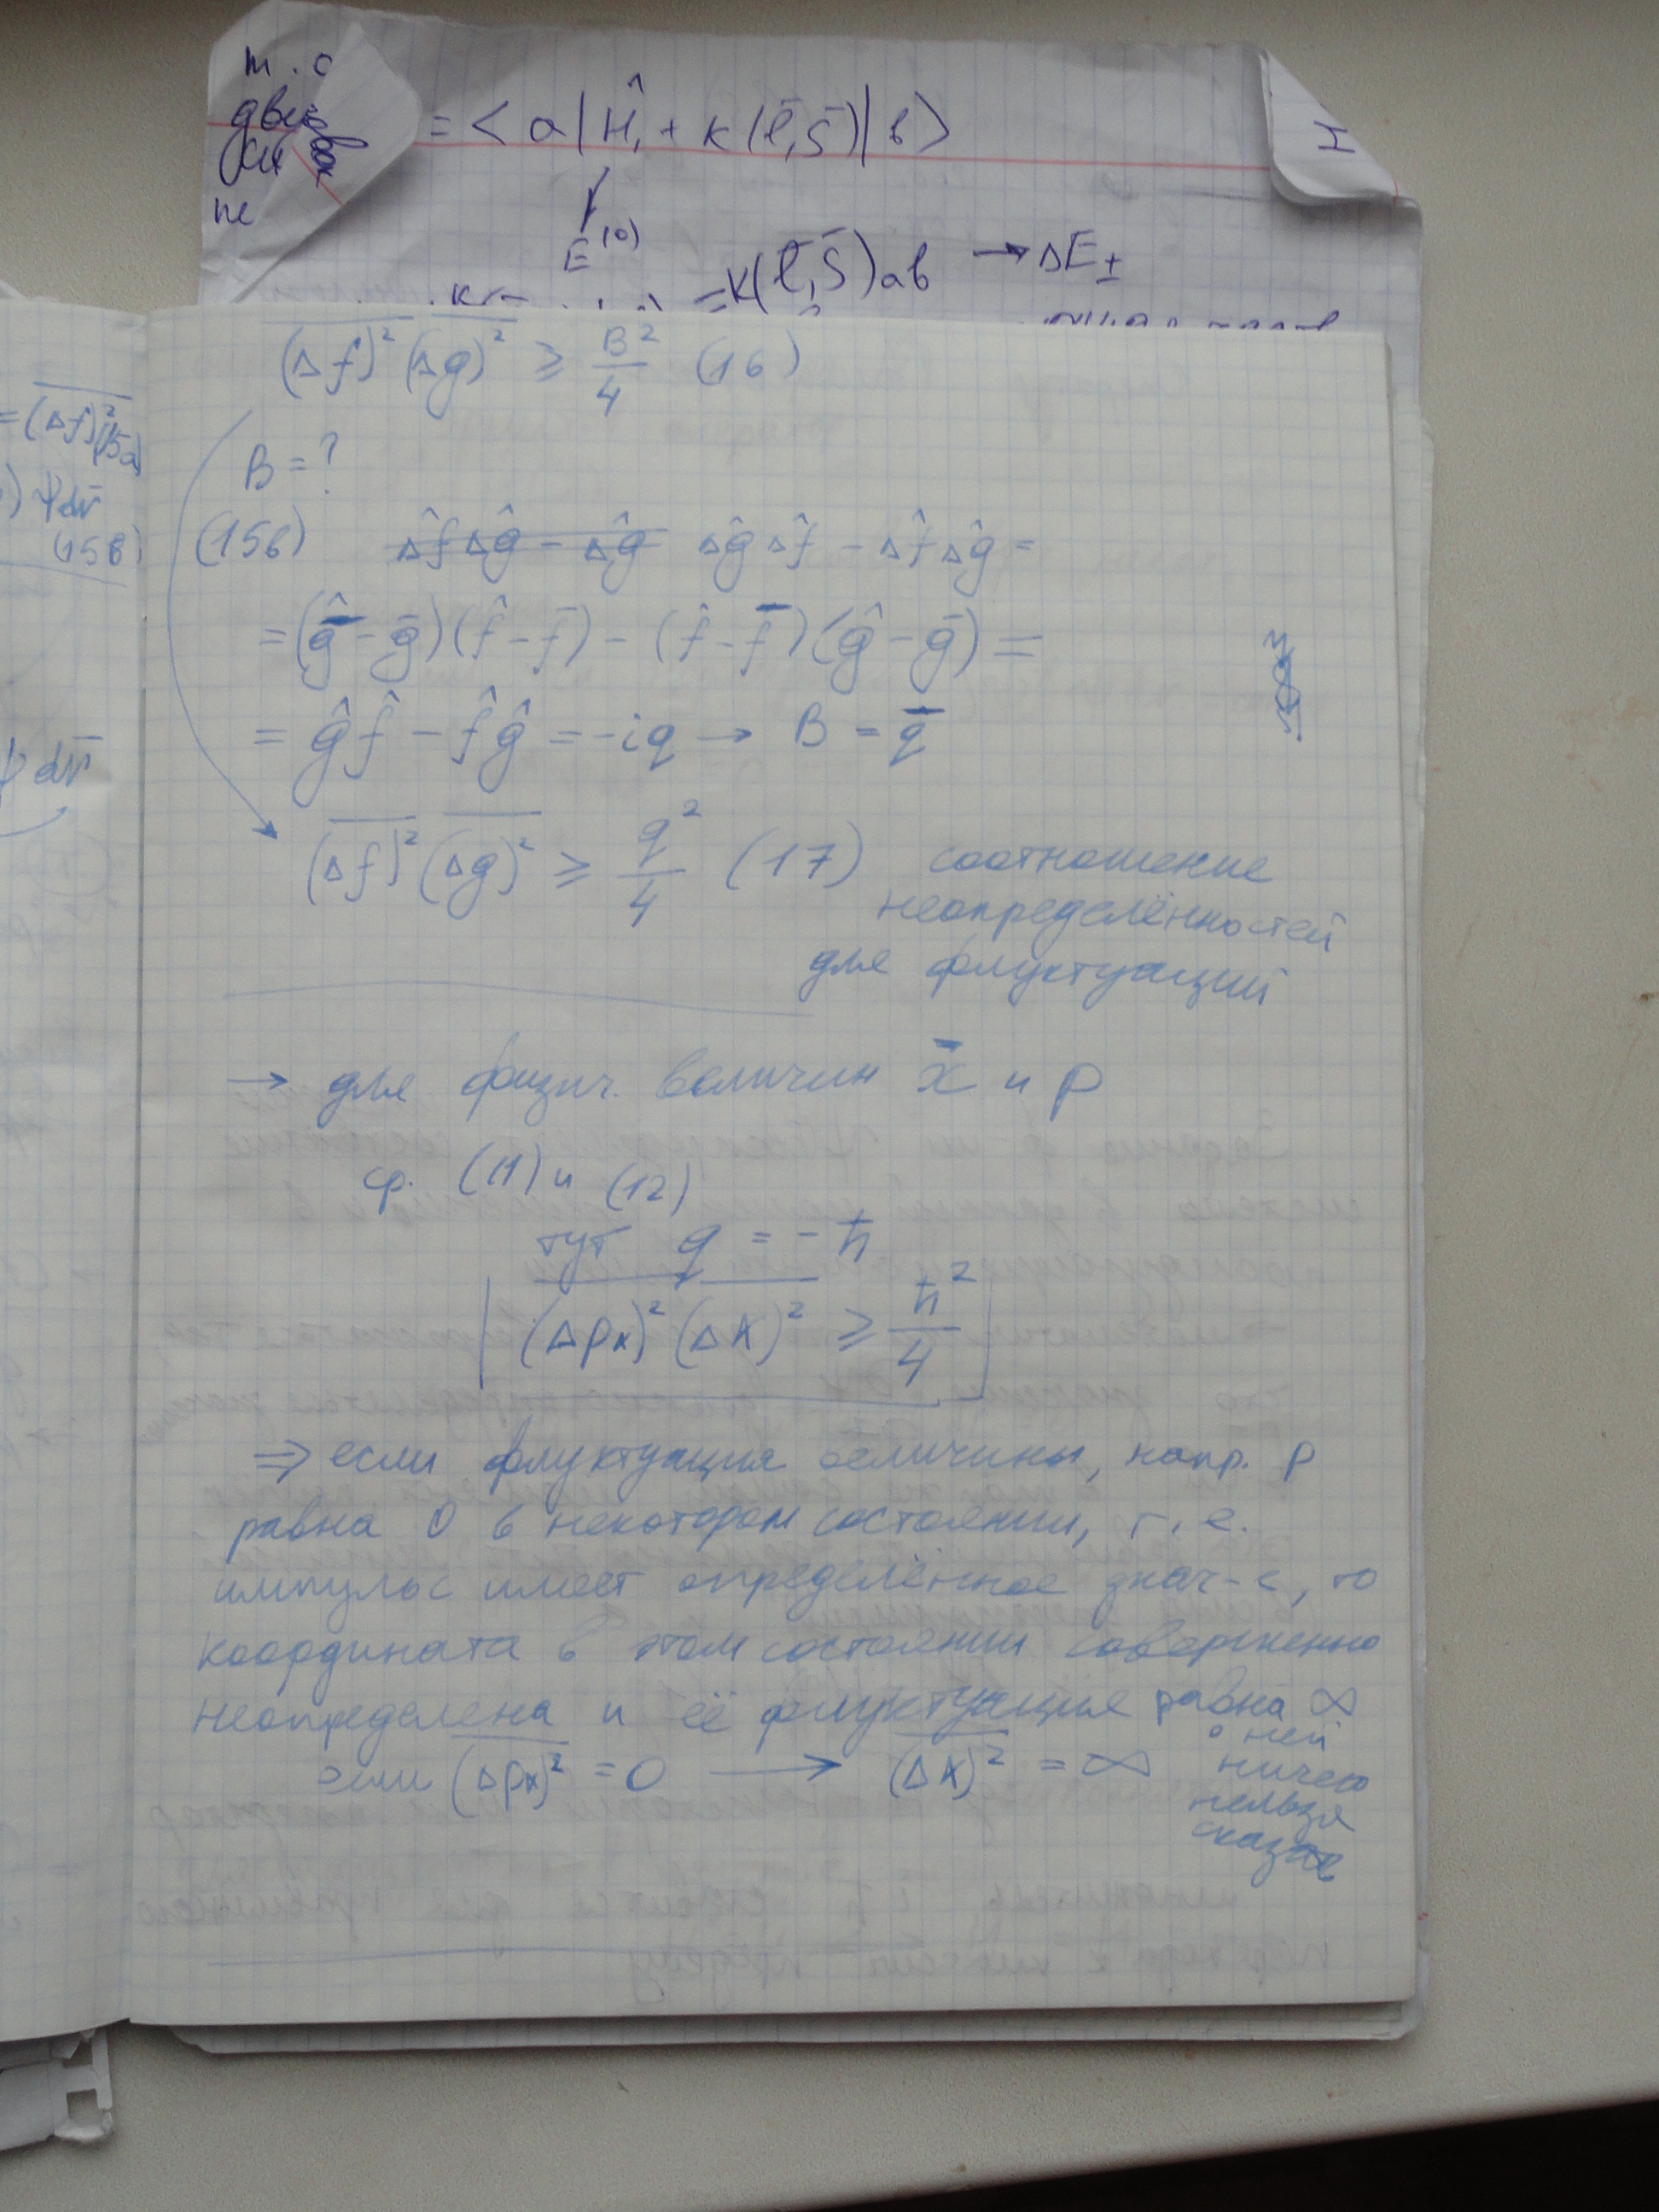 т.о
= <a|Ĥ₁ + K(l̄,S̄)|b>
не
E⁽⁰⁾
= K(l̄,S̄)ab → ΔE±
= (Δf)²
ψ dV
(15в)
ψ dV
(Δf)² (Δg)² ≥ B²/4 (16)
B = ?
(15в) Δĝ Δf̂ - Δf̂ Δĝ =
= (ĝ - ḡ)(f̂ - f̄) - (f̂ - f̄)(ĝ - ḡ) =
= ĝf̂ - f̂ĝ = -iq → B = q̄
(Δf)² (Δg)² ≥ q²/4 (17) соотношение
неопределённостей
для флуктуаций
→ для физич. величин x̄ и p
ср. (11) и (12)
тут q = -ħ
(Δpx)² (Δx)² ≥ ħ²/4
⇒ если флуктуация величины, напр. p
равна 0 в некотором состоянии, т.е.
импульс имеет определённое знач-е, то
координата в этом состоянии совершенно
неопределена и её флуктуация равна ∞
если (Δpx)² = 0 → (Δx)² = ∞
о ней
ничего
нельзя
сказать